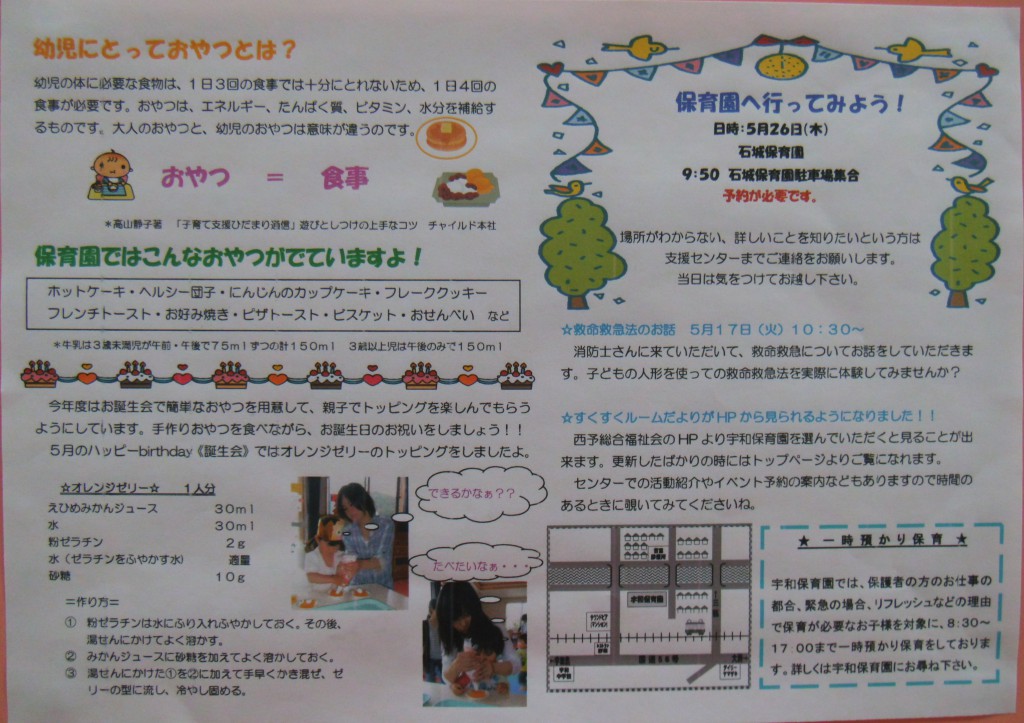 幼児にとっておやつとは？
幼児の体に必要な食物は、１日３回の食事では十分にとれないため、１日４回の
食事が必要です。おやつは、エネルギー、たんぱく質、ビタミン、水分を補給す
るものです。大人のおやつと、幼児のおやつは意味が違うのです。
おやつ ＝ 食事
＊高山静子著 「子育て支援ひだまり通信」遊びとしつけの上手なコツ チャイルド本社
保育園ではこんなおやつがでていますよ！
ホットケーキ・ヘルシー団子・にんじんのカップケーキ・フレーククッキー
フレンチトースト・お好み焼き・ピザトースト・ビスケット・おせんべい など
＊牛乳は３歳未満児が午前・午後で７５ｍｌずつの計１５０ｍｌ ３歳以上児は午後のみで１５０ｍｌ
今年度はお誕生会で簡単なおやつを用意して、親子でトッピングを楽しんでもらう
ようにしています。手作りおやつを食べながら、お誕生日のお祝いをしましょう！！
５月のハッピーbirthday《誕生会》ではオレンジゼリーのトッピングをしましたよ。
☆オレンジゼリー☆ １人分
えひめみかんジュース ３０ｍｌ
水 ３０ｍｌ
粉ゼラチン ２ｇ
水（ゼラチンをふやかす水） 適量
砂糖 １０ｇ
＝作り方＝
① 粉ゼラチンは水にふり入れふやかしておく。その後、
湯せんにかけてよく溶かす。
② みかんジュースに砂糖を加えてよく溶かしておく。
③ 湯せんにかけた①を②に加えて手早くかき混ぜ、ゼ
リーの型に流し、冷やし固める。
できるかなぁ？？
たべたいなぁ・・・
保育園へ行ってみよう！
日時：５月２６日（木）
石城保育園
９：５０ 石城保育園駐車場集合
予約が必要です。
場所がわからない、詳しいことを知りたいという方は
支援センターまでご連絡をお願いします。
当日は気をつけてお越し下さい。
☆救命救急法のお話 ５月１７日（火）１０：３０～
消防士さんに来ていただいて、救命救急についてお話をしていただきま
す。子どもの人形を使っての救命救急法を実際に体験してみませんか？
☆すくすくルームだよりがHPから見られるようになりました！！
西予総合福祉会のHPより宇和保育園を選んでいただくと見ることが出
来ます。更新したばかりの時にはトップページよりご覧になれます。
センターでの活動紹介やイベント予約の案内などもありますので時間の
あるときに覗いてみてくださいね。
宇和保育園
★ 一時預かり保育 ★
宇和保育園では、保護者の方のお仕事の
都合、緊急の場合、リフレッシュなどの理由
で保育が必要なお子様を対象に、8：30～
17：00まで一時預かり保育をしておりま
す。詳しくは宇和保育園にお尋ね下さい。